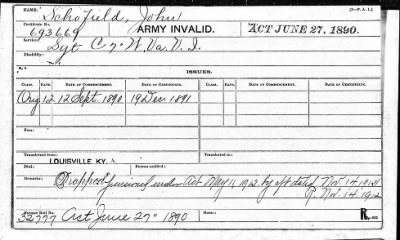 NAME: Schofield, John (3—P. A. I.)
Certificate No. 693669 ARMY INVALID. ACT JUNE 27, 1890.
Service: Sgt C 7" W. Va. V. I.
Disability:
ISSUES.
CLASS. RATE. DATE OF COMMENCEMENT. DATE OF CERTIFICATE. CLASS. RATE. DATE OF COMMENCEMENT. DATE OF CERTIFICATE.
Orig 12 12 Sept. 1890 19 Dec 1891
Fee:
Transferred from
LOUISVILLE, KY.
Died:
Remarks: Dropped pensioned under Act May 11, 1912, by cft dated Nov. 14, 1912
R. Nov. 14, 1912
Former Roll No. Act June 27" 1890 R.